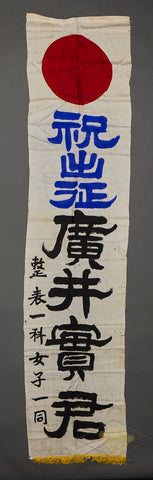 祝出征廣井實君
整表一科女子一同